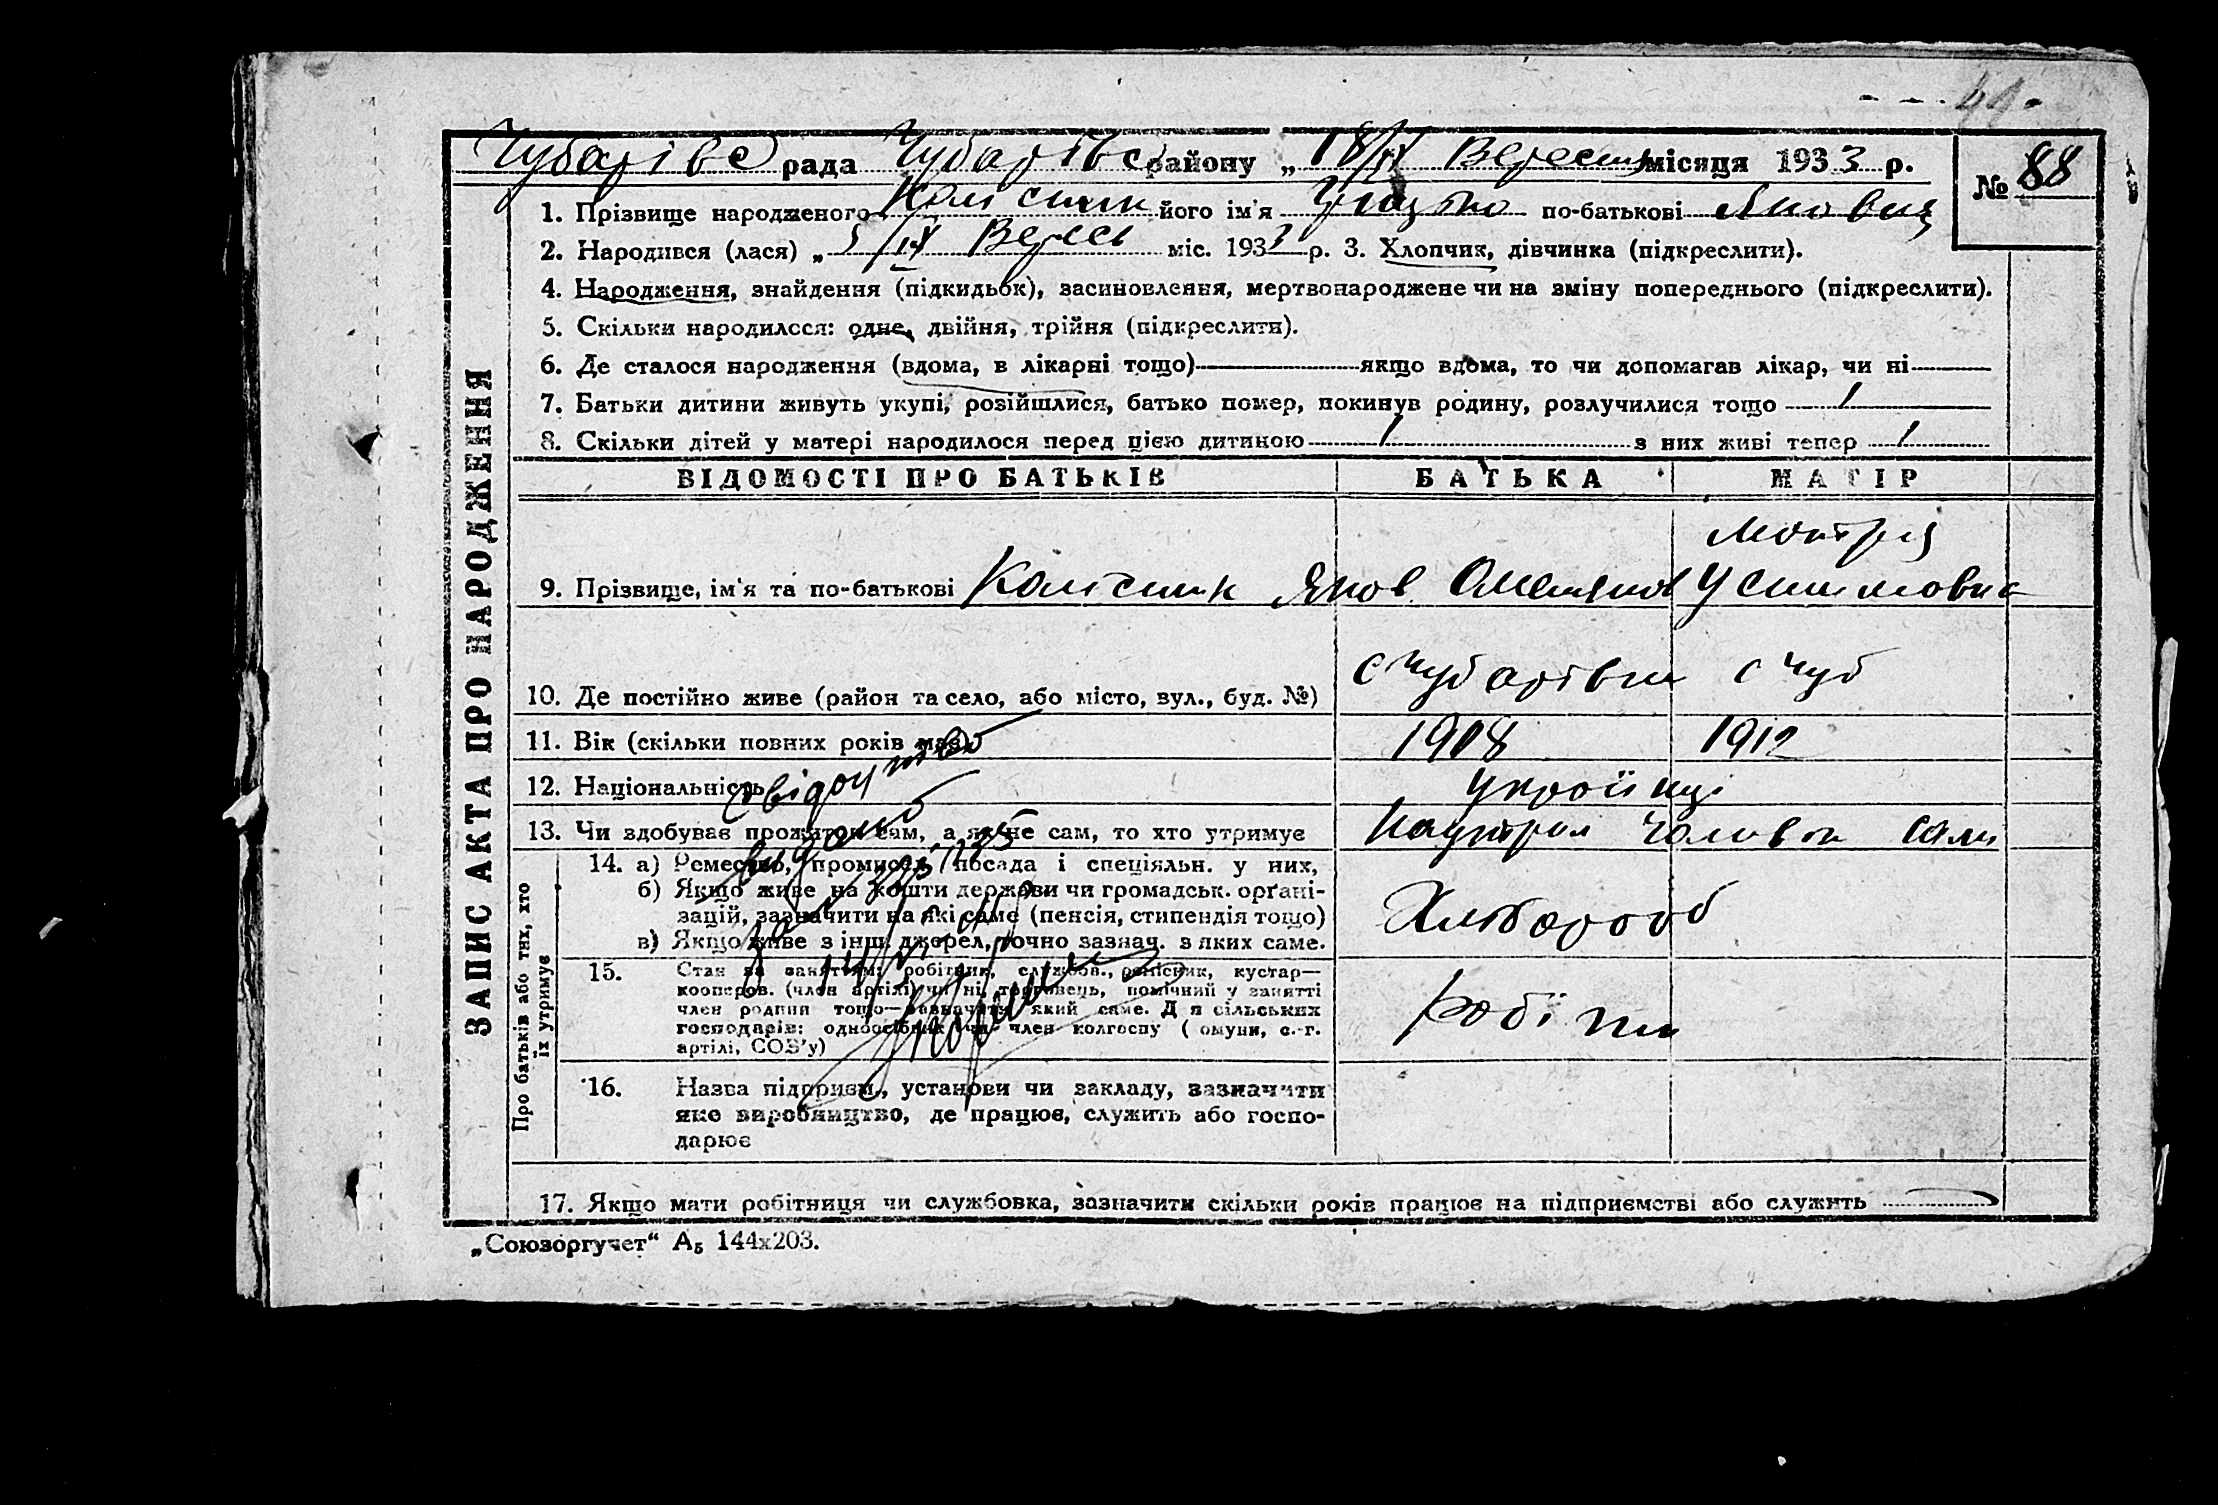 41
Чубарівс рада Чубарівс району „18/IX Вересня місяця 1933 р.
№ 88
1. Прізвище народженого Колісник його ім'я по-батькові Якович
2. Народився (лася) „5/IX Вересь міс. 1933 р. 3. Хлопчик, дівчинка (підкреслити).
4. Народження, знайдення (підкидьок), засиновлення, мертвонароджене чи на зміну попереднього (підкреслити).
5. Скільки народилося: одне, двійня, трійня (підкреслити).
6. Де сталося народження (вдома, в лікарні тощо) якщо вдома, то чи допомагав лікар, чи ні
7. Батьки дитини живуть укупі, розійшлися, батько помер, покинув родину, розлучилися тощо 1
8. Скільки дітей у матері народилося перед цією дитиною 1 з них живі тепер 1
ЗАПИС АКТА ПРО НАРОДЖЕННЯ
ВІДОМОСТІ ПРО БАТЬКІВ БАТЬКА МАТІР
Мотря
9. Прізвище, ім'я та по-батькові Колісник Яков Омелянов Устимовна
10. Де постійно живе (район та село, або місто, вул., буд. №) с Чубарівка с Чуб
11. Вік (скільки повних років має) 1908 1912
12. Національність українці
13. Чи здобуває прожиток сам, а як не сам, то хто утримує сам
свідоцтво
видано
Про батьків або тих, хто їх утримує
14. а) Ремесло, промисел, посада і спеціяльн. у них,
б) Якщо живе на кошти держави чи громадськ. орґані-
зацій, зазначити на які саме (пенсія, стипендія тощо)
в) Якщо живе з інш. джерел, точно зазнач. з яких саме.
Хлібороб
15. Стан за заняттям: робітник, службов., ремісник, кустар—
кооперов. (член артілі) чи ні, торговець, помічний у занятті
член родини тощо—зазначити який саме. Д я сільських
господарів: одноосібник чи член колгоспу ( омуни, с.-г.
артілі, СОЗ'у)
робітн
16. Назва підприєм., установи чи закладу, зазначити
яке виробництво, де працює, служить або госпо-
дарює
17. Якщо мати робітниця чи службовка, зазначити скільки років працює на підприємстві або служить
„Союзоргучет“ А₅ 144х203.